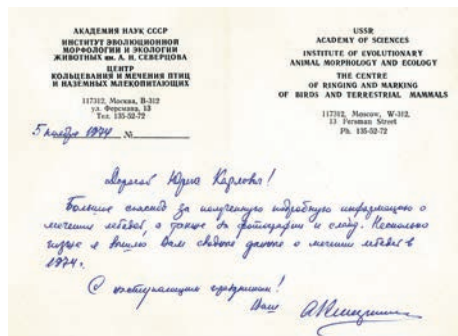 АКАДЕМИЯ НАУК СССР
ИНСТИТУТ ЭВОЛЮЦИОННОЙ
МОРФОЛОГИИ И ЭКОЛОГИИ
ЖИВОТНЫХ им. А. Н. СЕВЕРЦОВА
ЦЕНТР
КОЛЬЦЕВАНИЯ И МЕЧЕНИЯ ПТИЦ
И НАЗЕМНЫХ МЛЕКОПИТАЮЩИХ
117312, Москва, В-312
ул. Ферсмана, 13
Тел. 135-52-72
5 ноября 1974 №
USSR
ACADEMY OF SCIENCES
INSTITUTE OF EVOLUTIONARY
ANIMAL MORPHOLOGY AND ECOLOGY
THE CENTRE
OF RINGING AND MARKING
OF BIRDS AND TERRESTRIAL MAMMALS
117312, Moscow, W-312,
13 Fersman Street
Ph. 135-52-72
Дорогой Юрий Карлович!
Большое спасибо за полученную подробную информацию о
мечении лебедей, а также за фотографии и слайд. Несколько
позже я вышлю Вам сводные данные о мечении лебедей в
1974 г.
С наступающим праздником!
Ваш